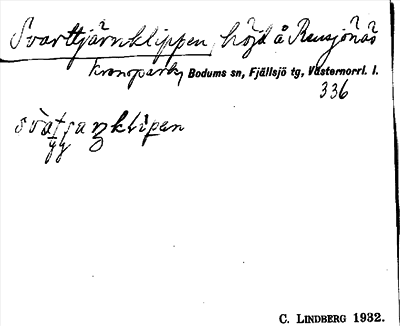 Svarttjärnklippen, höjd å Rensjönäs
kronopark, Bodums sn, Fjällsjö tg, Västernorrl. l.
336
svatsanklipen
gg
C. LINDBERG 1932.